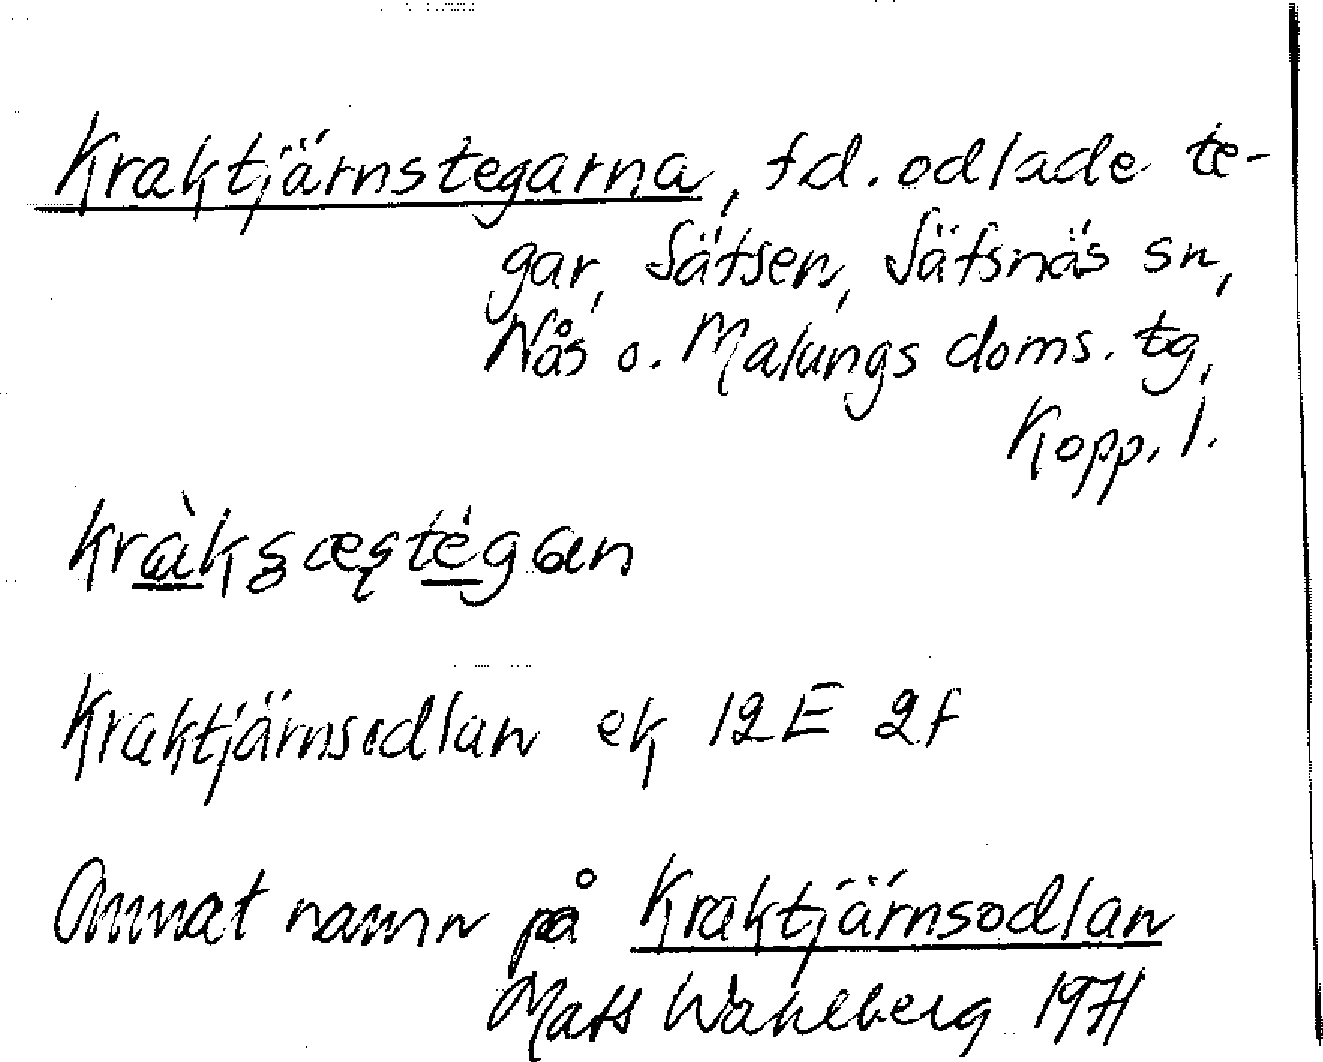 Kraktjärnstegarna, f.d. odlade te-
gar, Sätsen, Säfsnäs sn,
Nås o. Malungs doms. tg,
Kopp. l.
Kraktjärnsodlan ek 12E 2f
Annat namn på Kraktjärnsodlan
Mats Wahlberg 1971